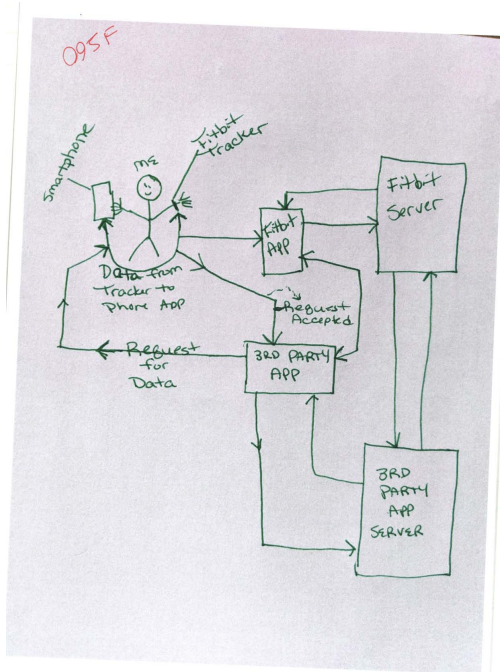 095F
Smartphone
ME
Fitbit
Tracker
Fitbit
Server
Fitbit
APP
Data from
Tracker to
phone APP
Request
Accepted
Request
for
Data
3RD PARTY
APP
3RD
PARTY
APP
SERVER